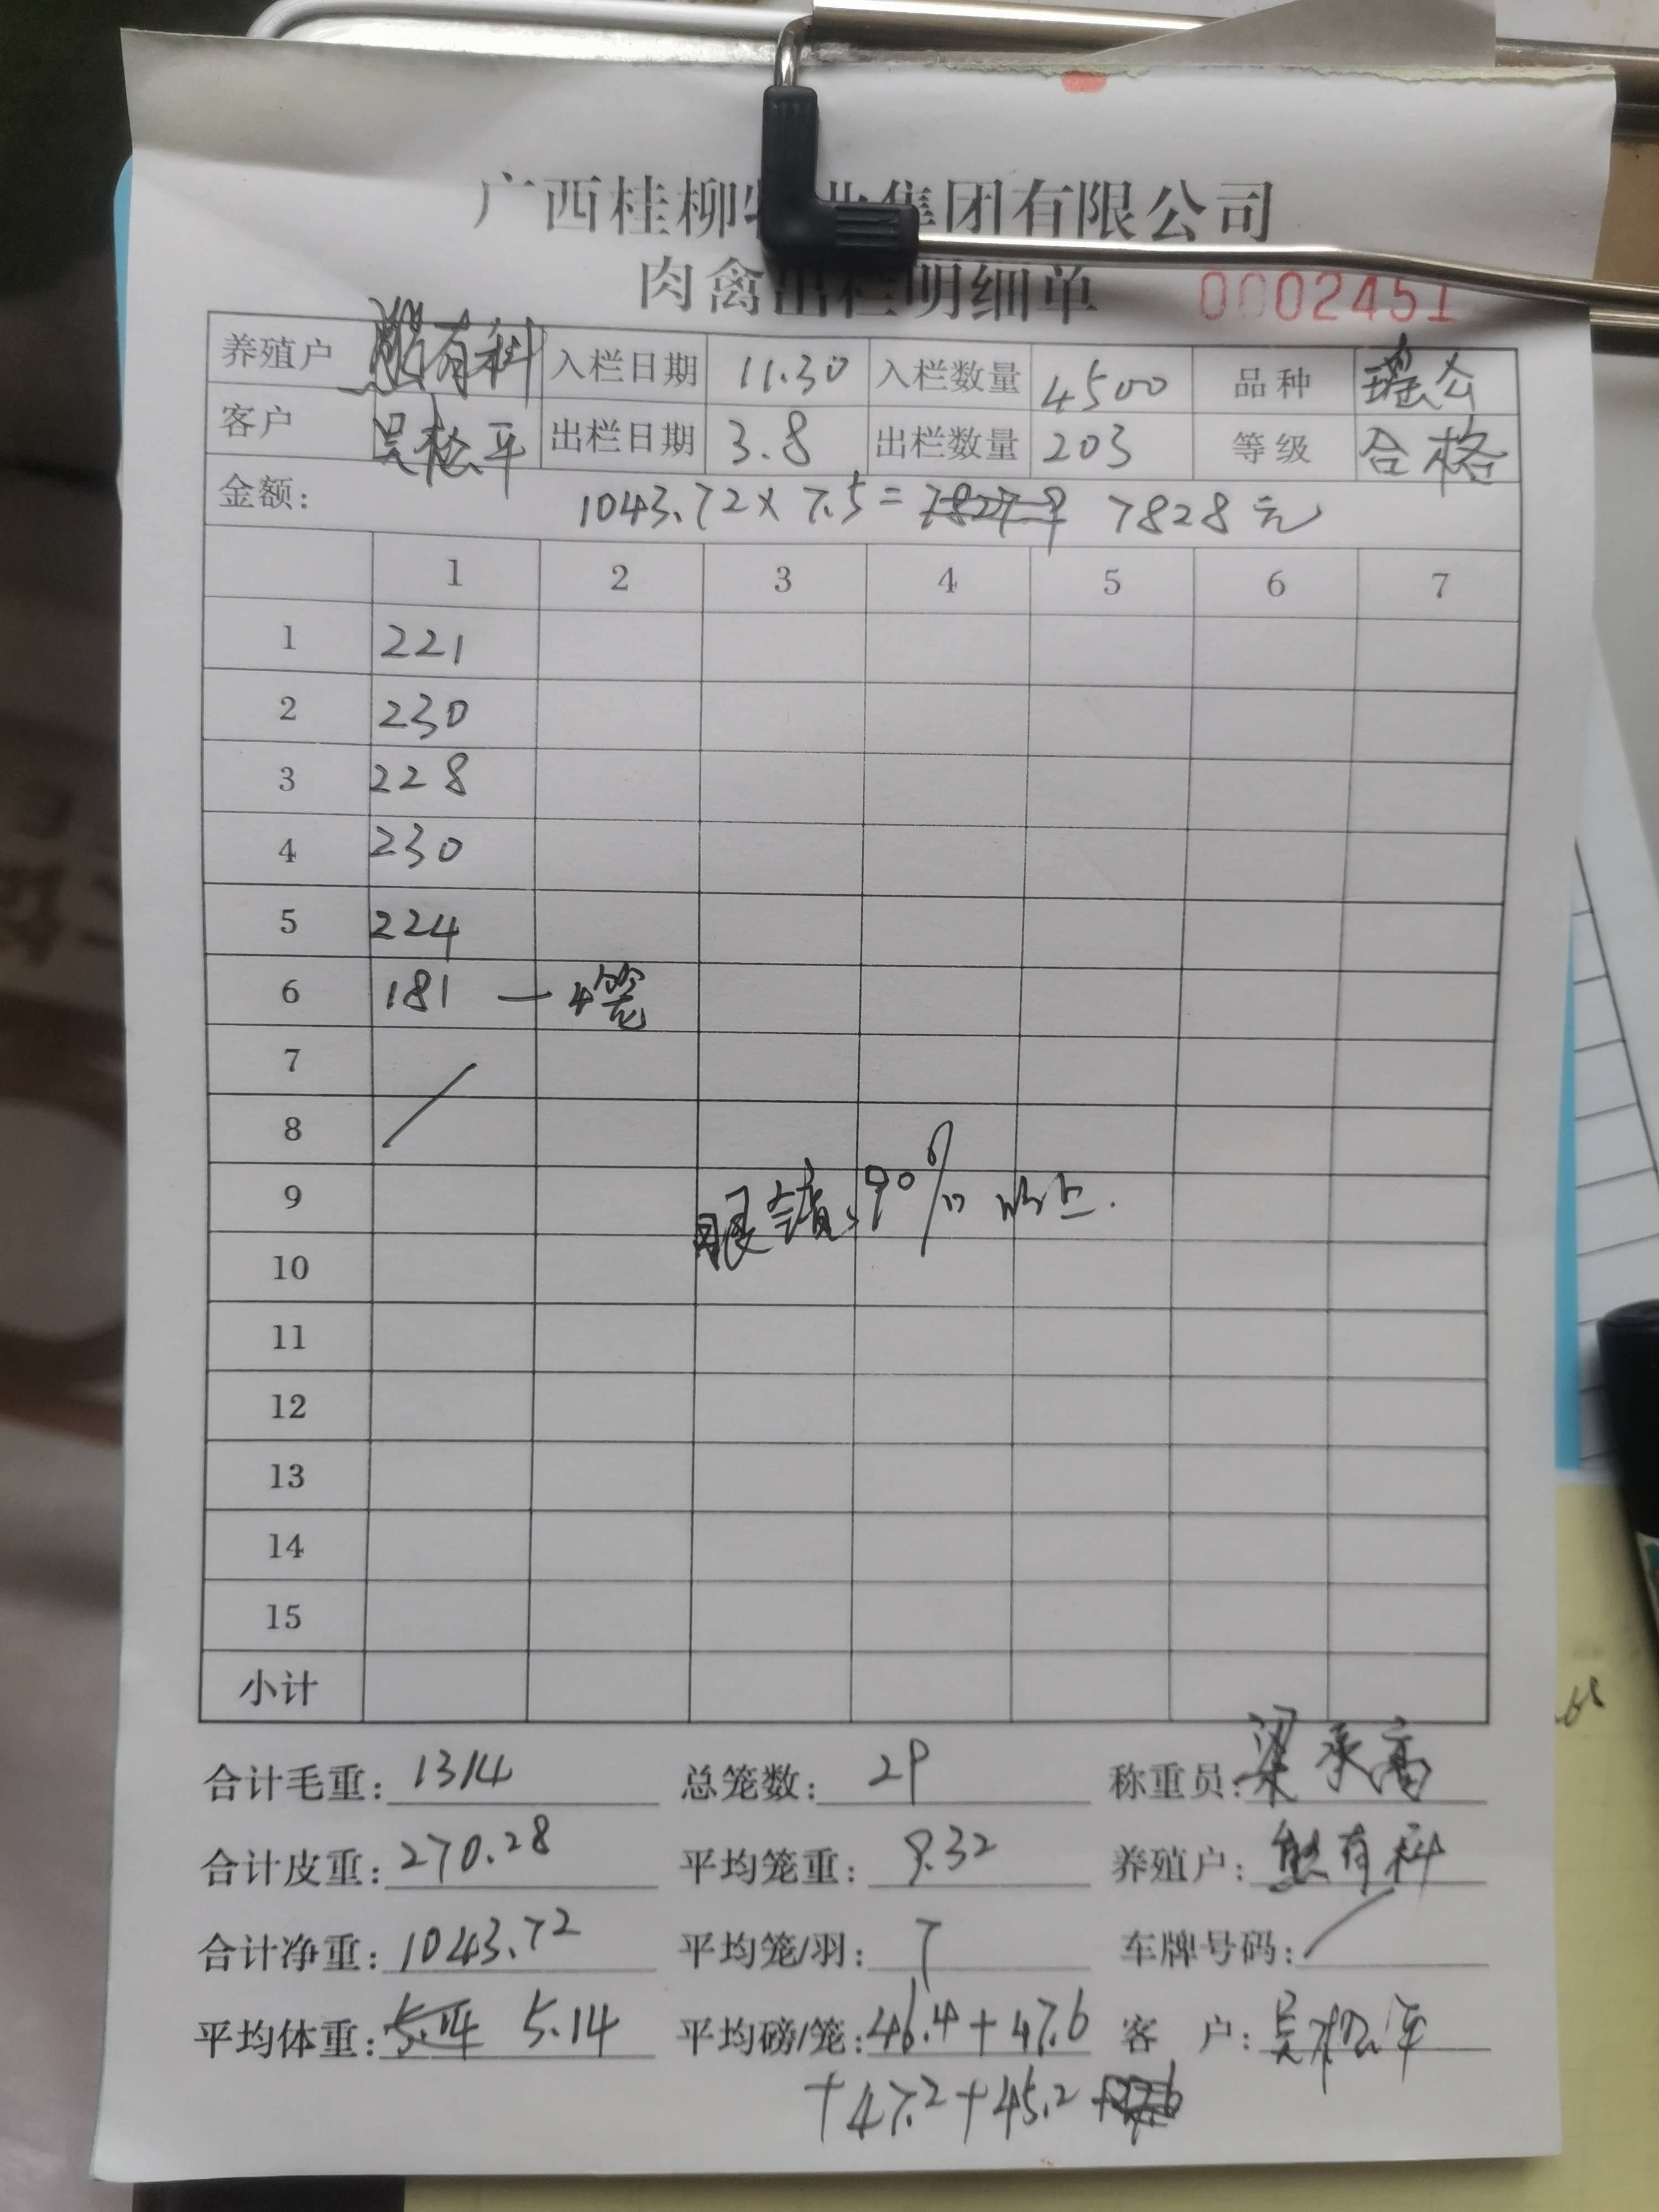 广西桂柳牧业集团有限公司
肉禽出栏明细单 0002451
养殖户 熊有科 入栏日期 11.30 入栏数量 4500 品种 瑶公
客户 吴松平 出栏日期 3.8 出栏数量 203 等级 合格
金额: 1043.72×7.5= 7828元
1 2 3 4 5 6 7
1 221
2 230
3 228
4 230
5 224
6 181 — 4笼
7
8
9 眼睛90%以上.
10
11
12
13
14
15
小计
合计毛重: 1314 总笼数: 29 称重员: 梁承高
合计皮重: 270.28 平均笼重: 9.32 养殖户: 熊有科
合计净重: 1043.72 平均笼/羽: 7 车牌号码: /
平均体重: 5.14 5.14 平均磅/笼: 46.4+47.6 客 户: 吴松平
+47.2+45.2